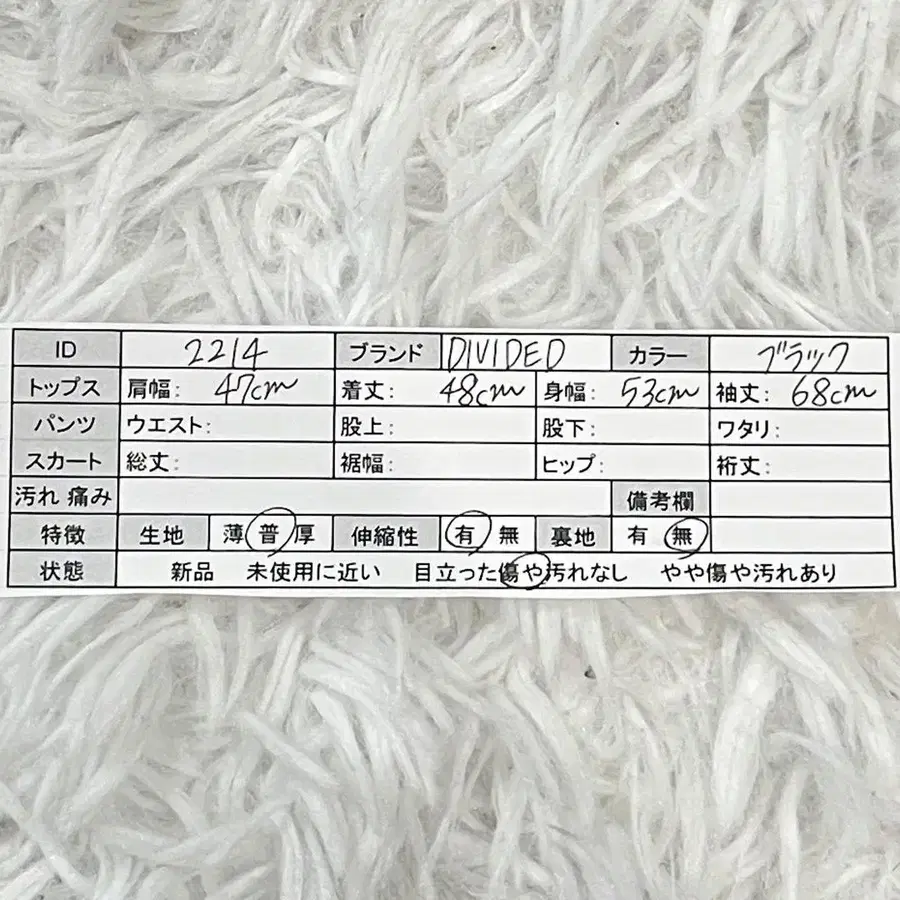 ID 2214 ブランド DIVIDED カラー ブラック
トップス 肩幅: 47cm 着丈: 48cm 身幅: 53cm 袖丈: 68cm
パンツ ウエスト: 股上: 股下: ワタリ:
スカート 総丈: 裾幅: ヒップ: 裄丈:
汚れ 痛み 備考欄
特徴 生地 薄 普 厚 伸縮性 有 無 裏地 有 無
状態 新品 未使用に近い 目立った傷や汚れなし やや傷や汚れあり